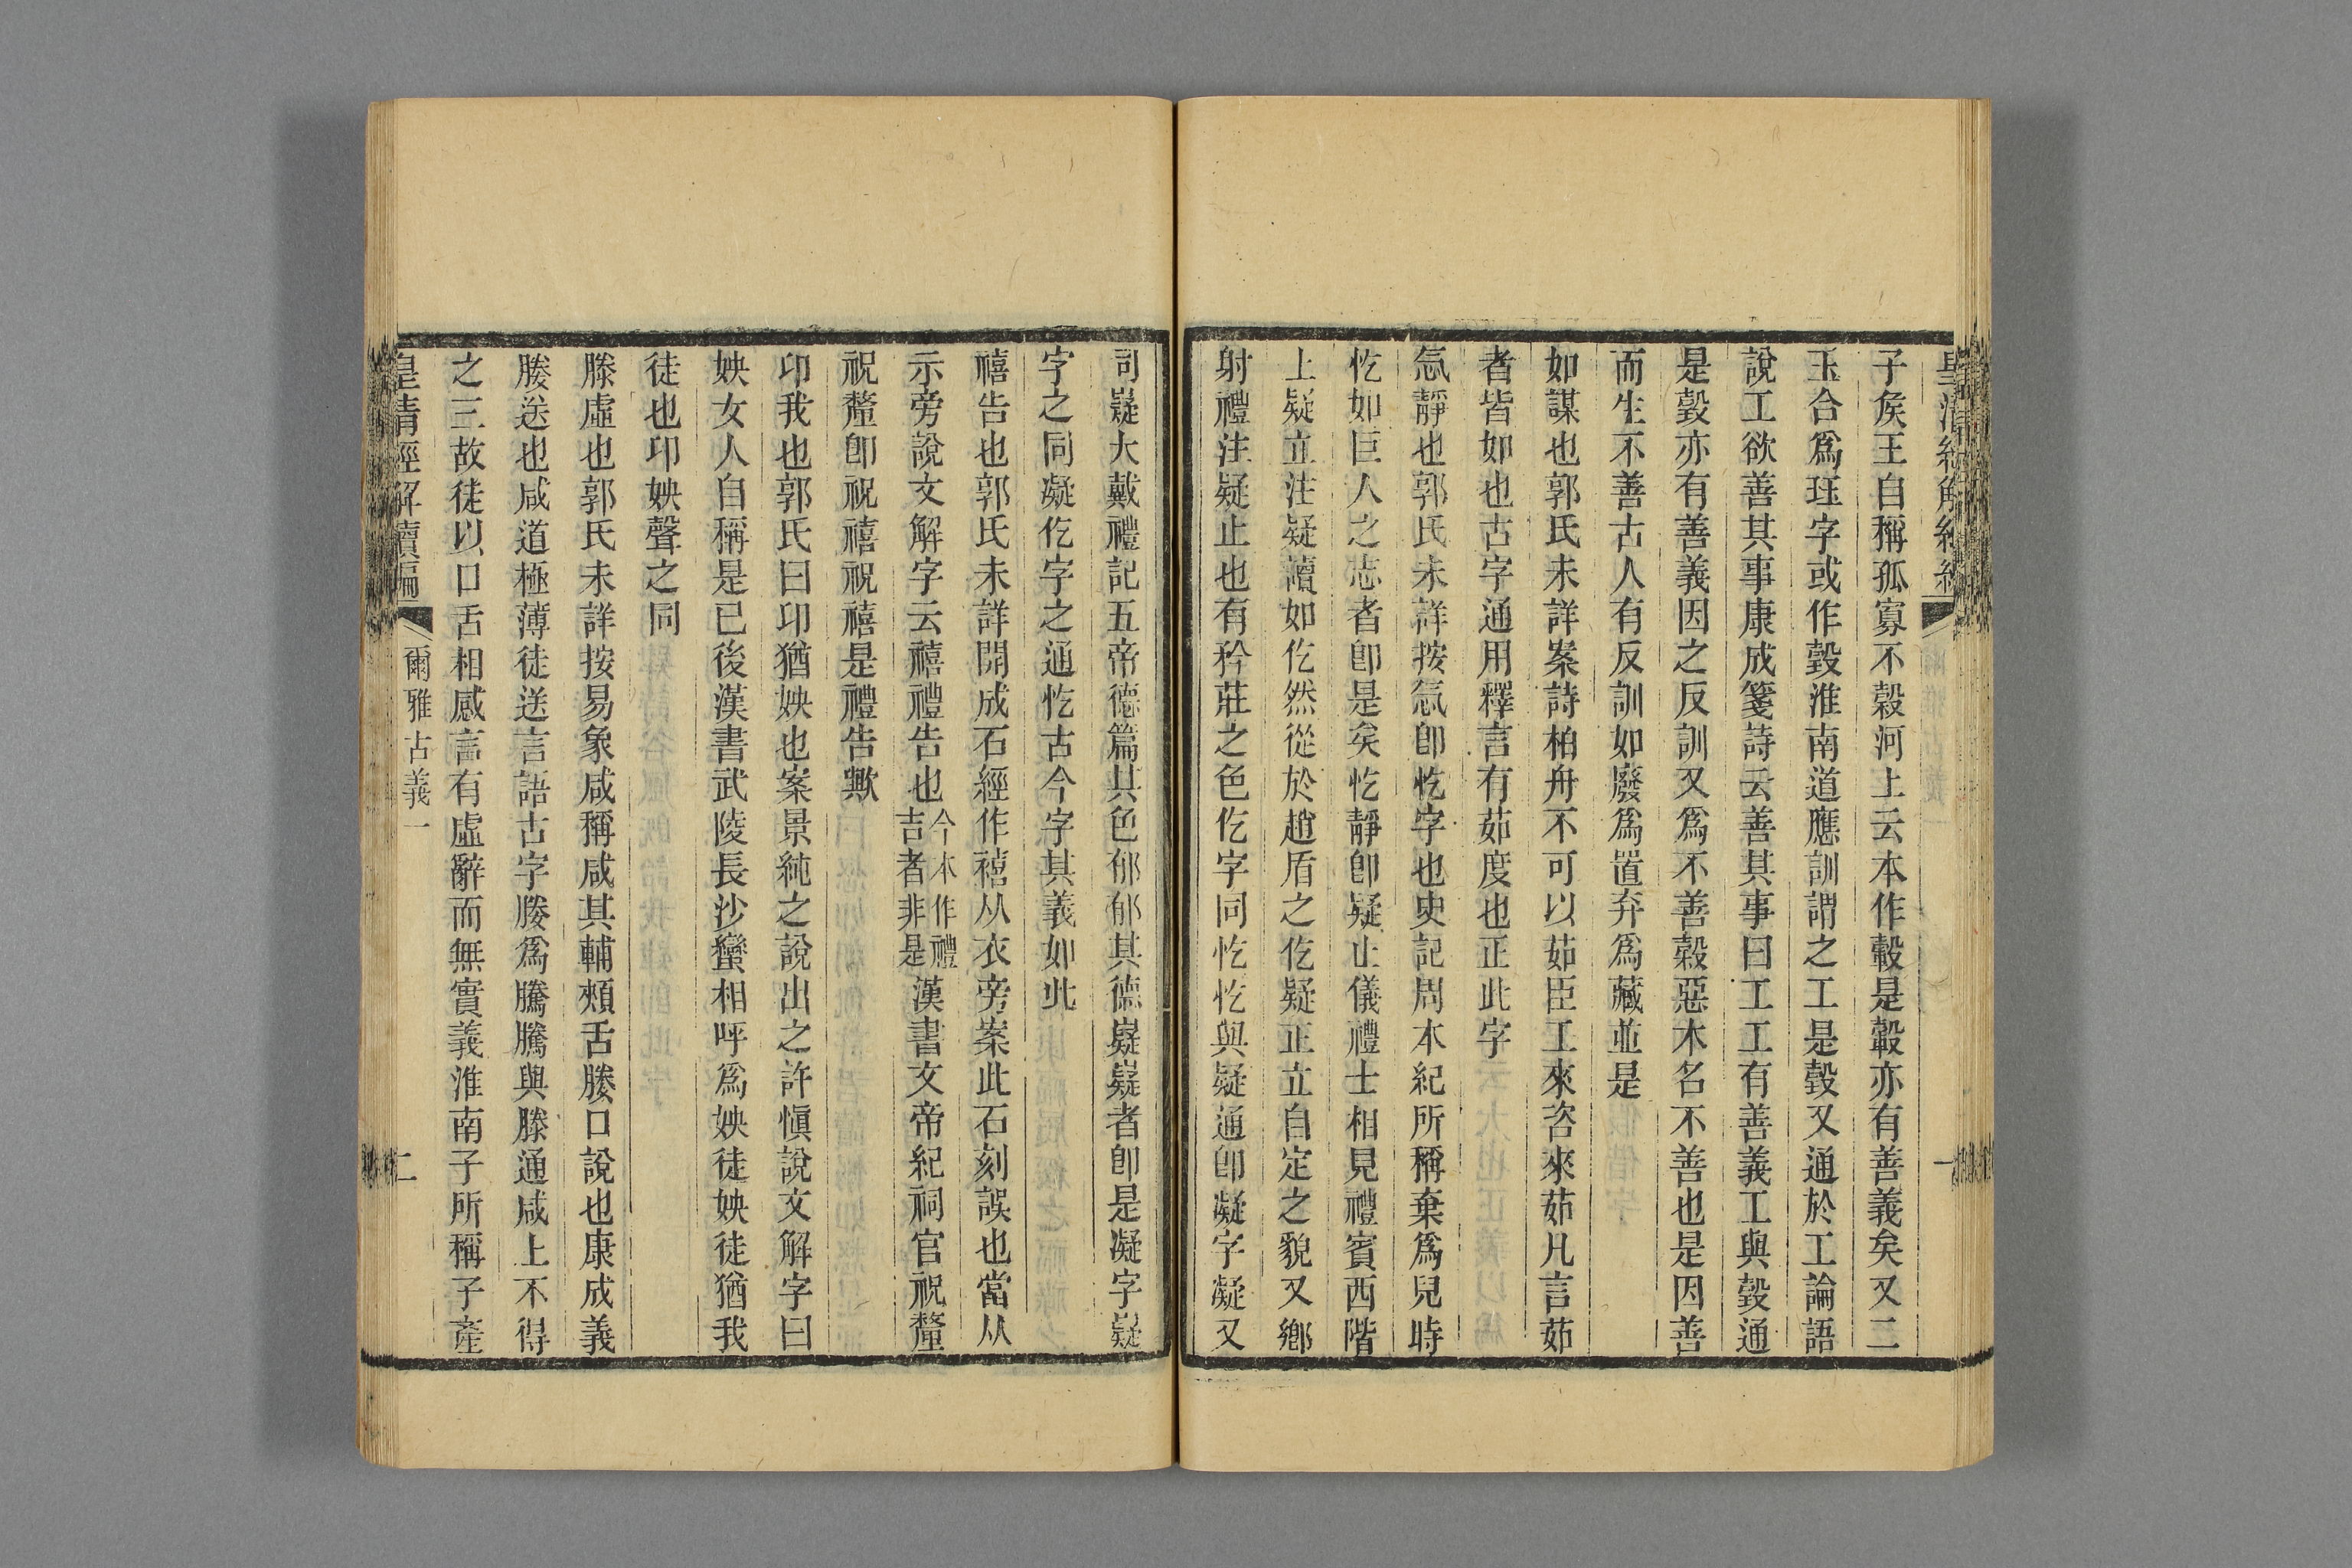 子矦王自稱孤寡不穀河上云本作轂是轂亦有善義矣又二
玉合爲玨字或作㲄淮南道應訓謂之工是㲄又通於工論語
說工欲善其事康成箋詩云善其事曰工工有善義工與㲄通
是㲄亦有善義因之反訓又爲不善穀惡木名不善也是因善
而生不善古人有反訓如廢爲置弃爲藏並是
如謀也郭氏未詳案詩柏舟不可以茹臣工來咨來茹凡言茹
者皆如也古字通用釋言有茹度也正此字
忥靜也郭氏未詳按忥卽忔字也史記周本紀所稱棄爲兒時
忔如巨人之志者卽是矣忔靜卽疑止儀禮士相見禮賓西階
上疑立注疑讀如仡然從於趙盾之仡疑正立自定之貌又鄉
射禮注疑止也有矜莊之色仡字同忔忔與疑通卽凝字凝又
司嶷大戴禮記五帝德篇其色郁郁其德嶷嶷者卽是凝字嶷
字之同凝仡字之通忔古今字其義如此
禧告也郭氏未詳開成石經作禧从衣旁案此石刻誤也當从
示旁說文解字云禧禮告也今本作禮吉者非是漢書文帝紀祠官祝釐
祝釐卽祝禧祝禧是禮告歟
卬我也郭氏曰卬猶姎也案景純之說出之許愼說文解字曰
姎女人自稱是已後漢書武陵長沙蠻相呼爲姎徒姎徒猶我
徒也卬姎聲之同
滕虛也郭氏未詳按易象咸稱咸其輔頰舌媵口說也康成義
媵送也咸道極薄徒送言語古字媵爲騰騰與滕通咸上不得
之三故徒以口舌相感言有虛辭而無實義淮南子所稱子產
皇清經解續編
爾雅古義一
二